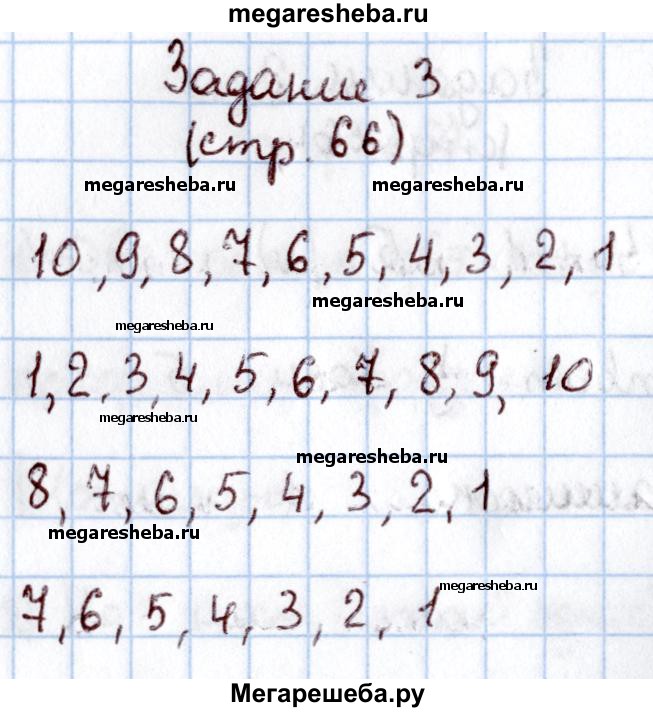 megaresheba.ru
Задание 3
(стр. 66)
megaresheba.ru megaresheba.ru
10, 9, 8, 7, 6, 5, 4, 3, 2, 1
megaresheba.ru
megaresheba.ru
1, 2, 3, 4, 5, 6, 7, 8, 9, 10
megaresheba.ru
megaresheba.ru
8, 7, 6, 5, 4, 3, 2, 1
megaresheba.ru
megaresheba.ru
7, 6, 5, 4, 3, 2, 1
Мегарешеба.ру